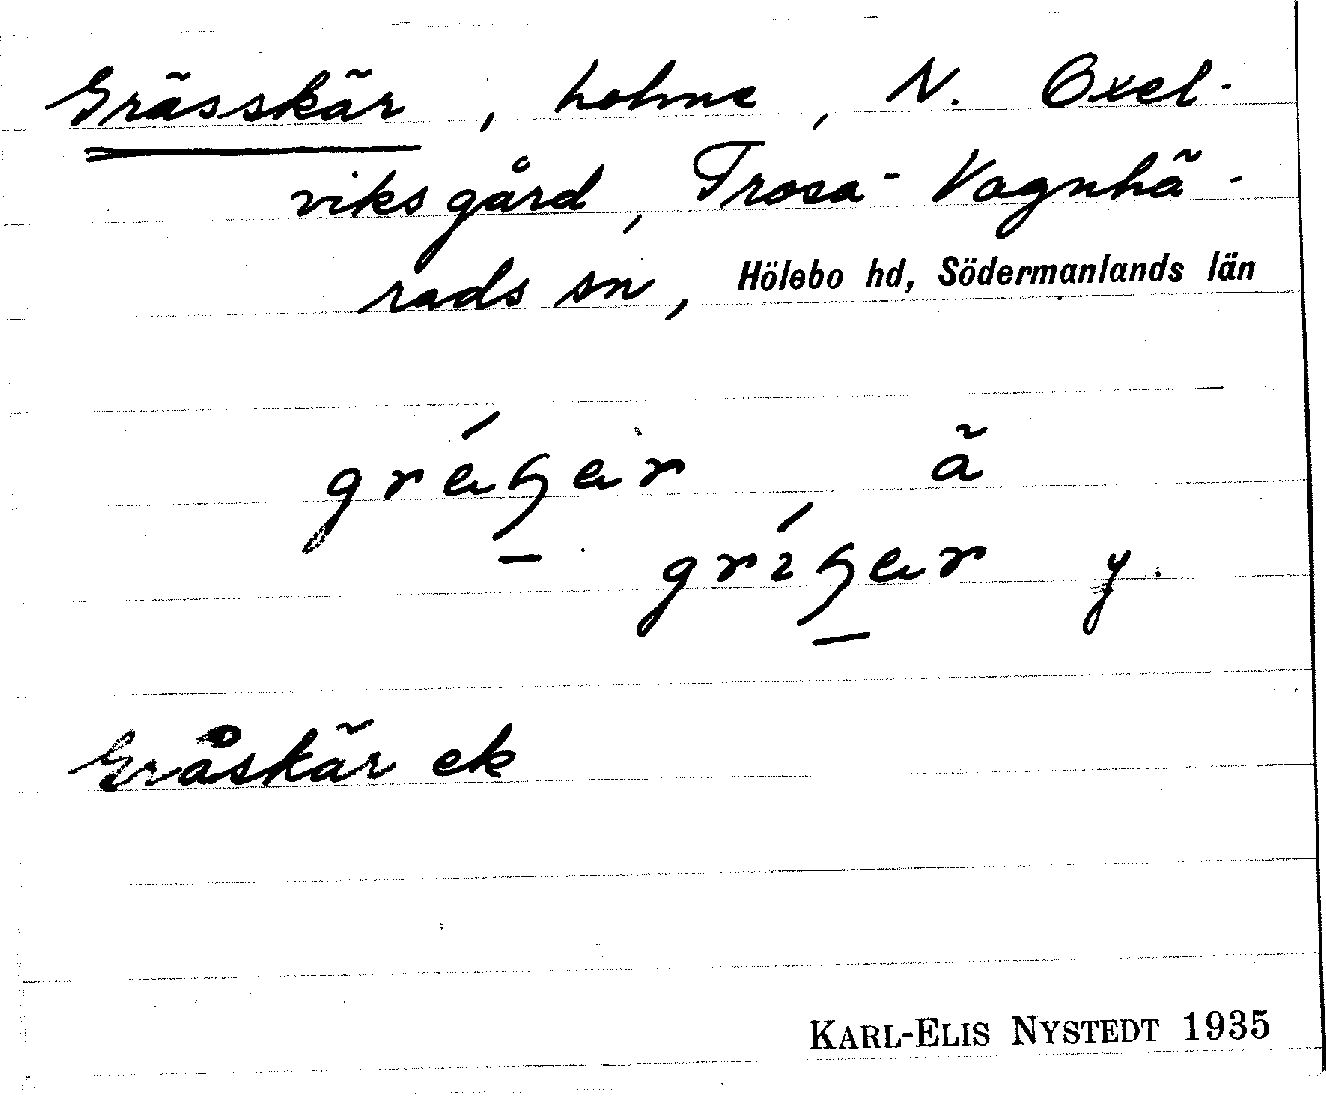 Grässkär, holme, N. Oxel-
viks gård, Trosa-Vagnhä-
rads sn, Hölebo hd, Södermanlands län
ä
y.
Gråskär ek
KARL-ELIS NYSTEDT 1935